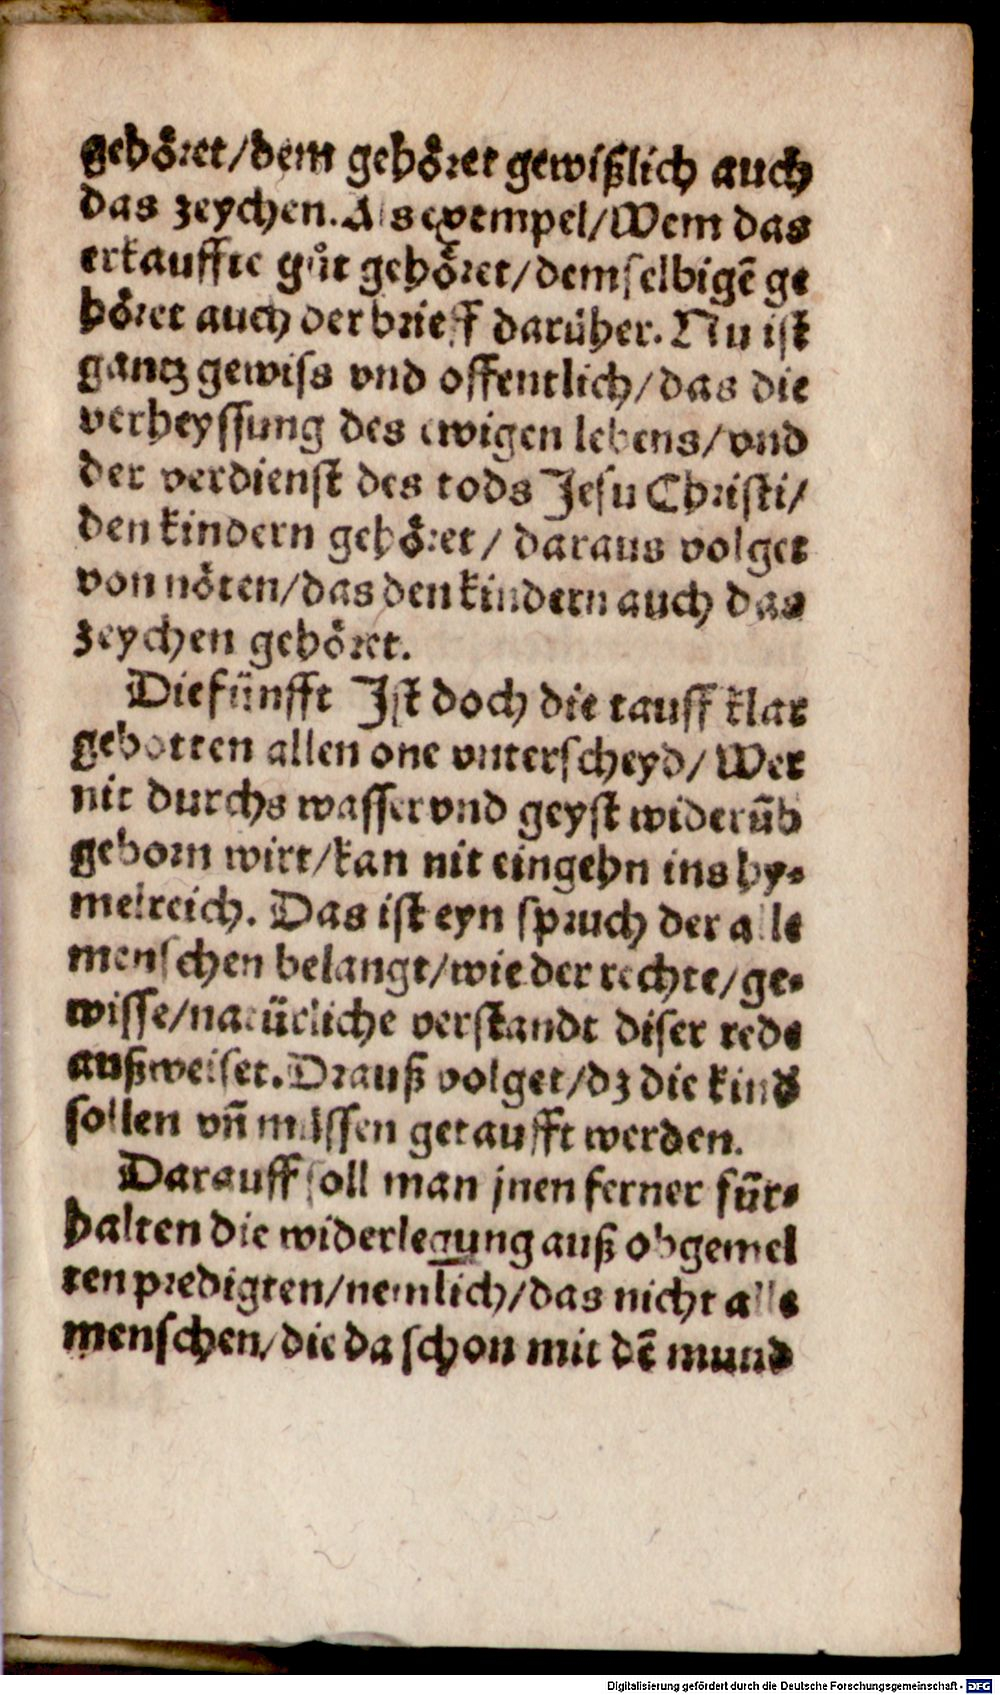 gehöret/dem gehöret gewißlich auch
das zeychen. Als exempel/Wem das
erkauffte gůt gehöret/demselbigē ge
höret auch der brieff darüber. Nu ist
gantz gewiss vnd offentlich/das die
verheyssung des ewigen lebens/vnd
der verdienst des tods Jesu Christi/
den kindern gehöret/ daraus volget
von nöten/das den kindern auch das
zeychen gehöret.
Die fünfft Ist doch die tauff klar
gebotten allen one vnterscheyd/Wer
nit durchs wasser vnd geyst widerūb
geborn wirt/kan nit eingehn ins hy-
melreich. Das ist eyn spruch der alle
menschen belangt/wie der rechte/ge-
wisse/natürliche verstandt diser rede
außweiset. Drauß volget/dz die kind
sollen vn̄ müssen getaufft werden.
Darauff soll man jnen ferner für-
halten die widerlegung auß obgemel
ten predigten/nemlich/das nicht alle
menschen/die da schon mit dē mund
Digitalisierung gefördert durch die Deutsche Forschungsgemeinschaft - DFG